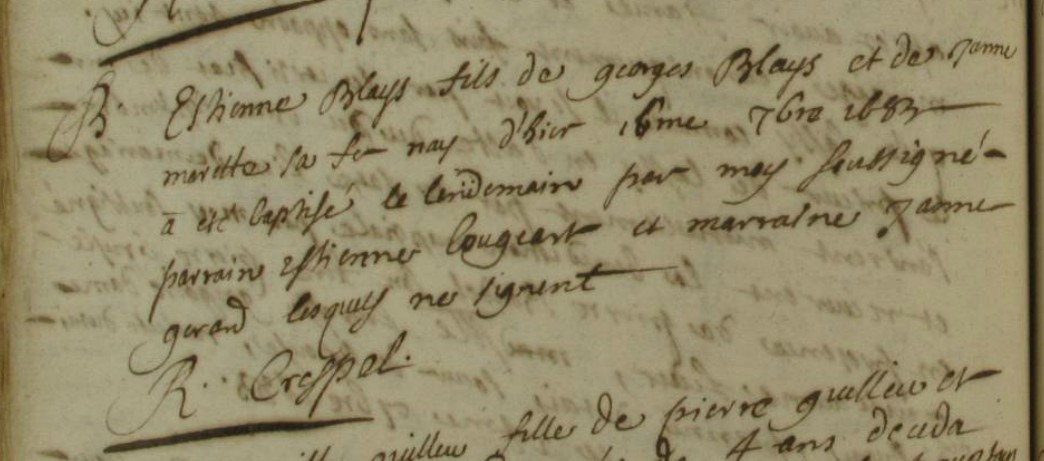 B. Estienne Blays fils de georges Blays et de Janne
marette sa fe nay d'hier 16me 7bre 1683
a été baptisé le lendemain par moy soussigné
parrain estienne bougeart et marraine Janne
gerard lesquels ne signent
R. Crespel.
fille de pierre guilleu et
4 ans deceda